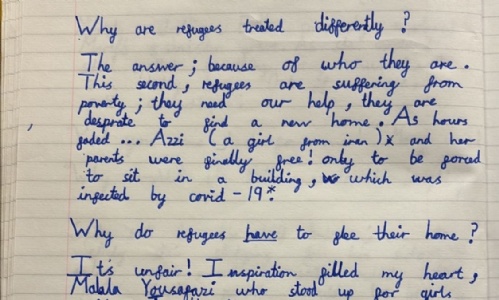 Why are refugees treated differently?
The answer; because of who they are.
This second, refugees are suffering from
poverty; they need our help, they are
desprate to find a new home. As hours
faded... Azzi (a girl from iran) x and her
parents were finally free! only to be forced
to sit in a building, which was
infected by covid-19*.
Why do refugees have to flee their home?
It's unfair! Inspiration filled my heart,
Malala Yousafazi who stood up for girls